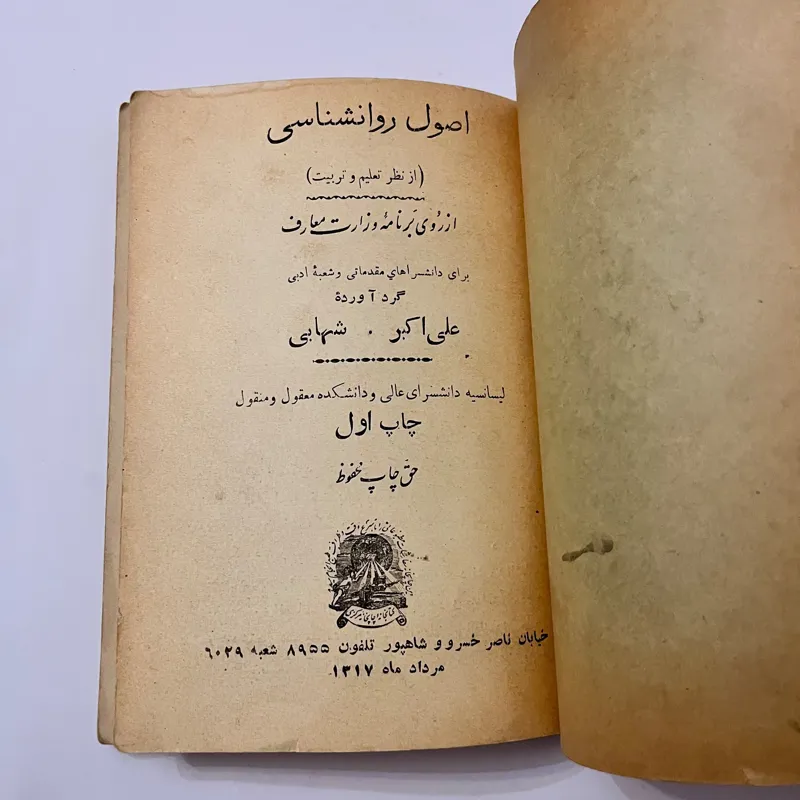 اصول روانشناسی
(از نظر تعلیم و تربیت)
از روی برنامهٔ وزارت معارف
برای دانشسراهای مقدماتی و شعبهٔ ادبی
گرد آوردهٔ
علی اکبر . شهابی
لیسانسیه دانشسرای عالی و دانشکده معقول و منقول
چاپ اول
حق چاپ محفوظ
خیابان ناصر خسرو و شاهپور تلفون ۸۹۵۵ شعبه ۶۰۲۹
مرداد ماه ۱۳۱۷